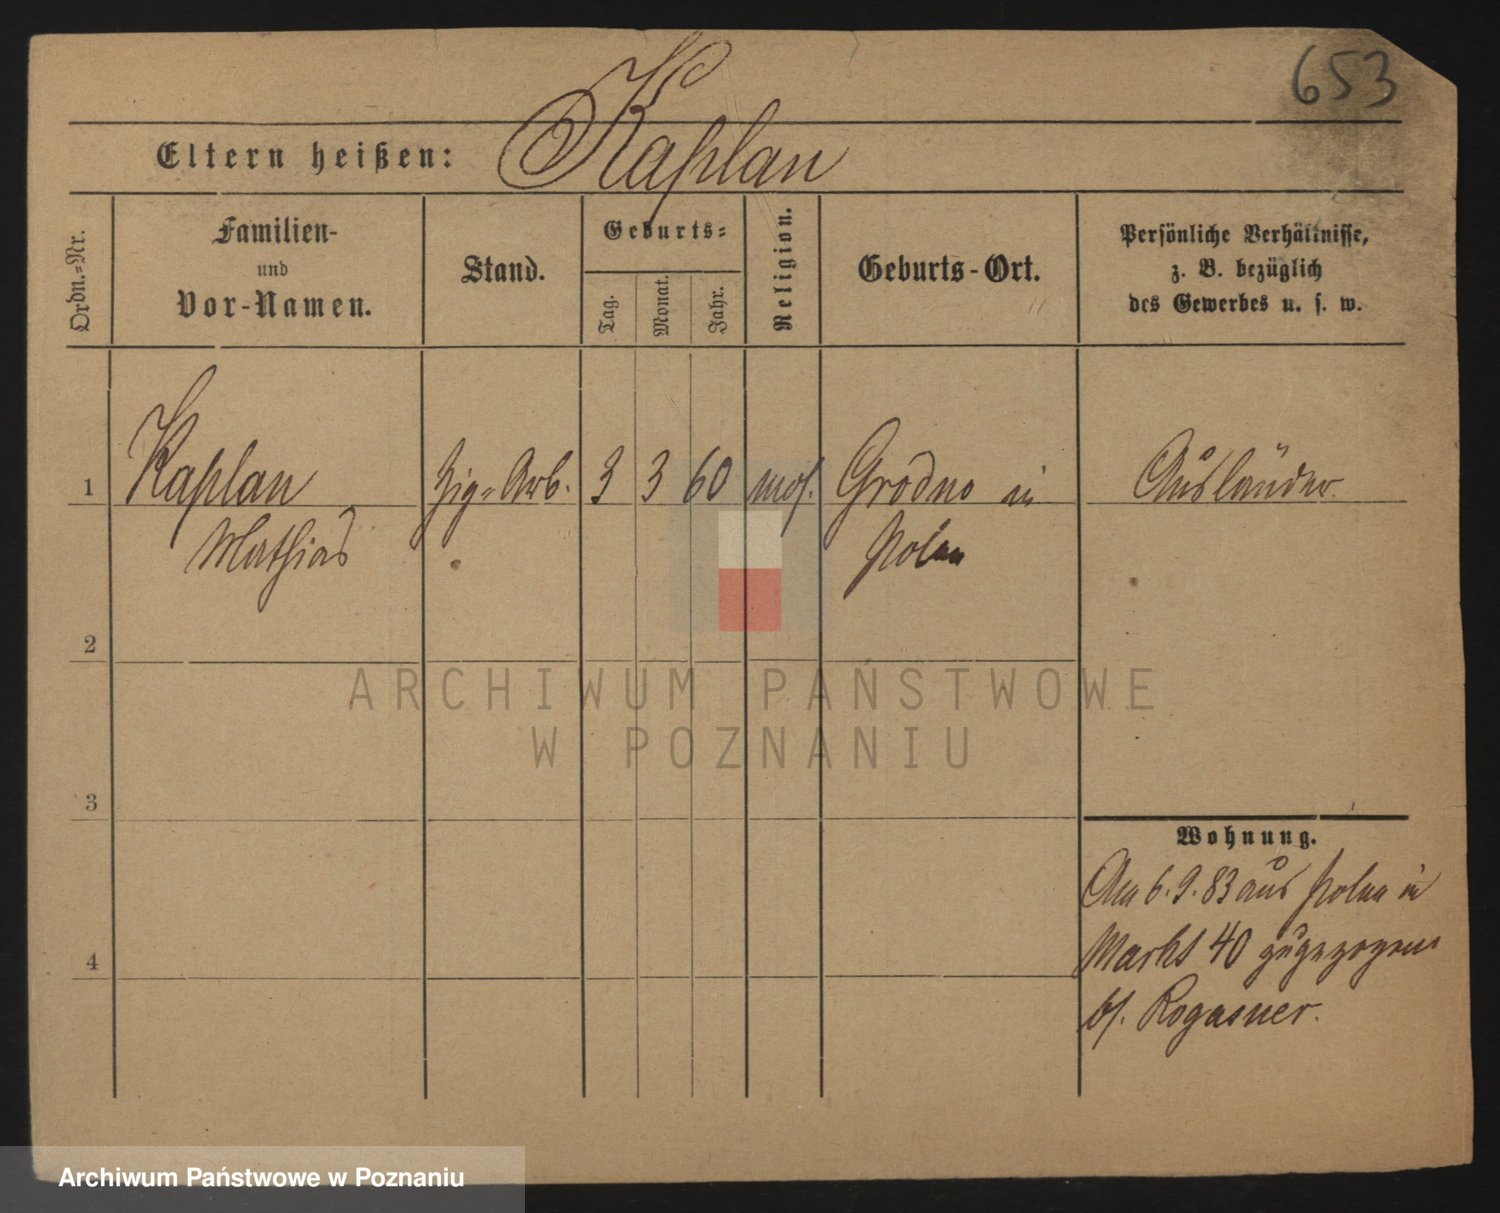 653
Eltern heißen: Kaplan
Ordn.-Nr.
Familien-
und
Vor-Namen.
Stand.
Geburts-
Tag.
Monat.
Jahr.
Religion.
Geburts-Ort.
Persönliche Verhältnisse,
z. B. bezüglich
des Gewerbes u. s. w.
1 Kaplan Zig-Arb. 3 3 60 mos. Grodno in Ausländer
Mathias Polen
2
ARCHIWUM PAŃSTWOWE
W POZNANIU
3
Wohnung.
Am 6.9.83 aus Polen in
4 Markt 40 zugezogen
bs. Rogasner.
Archiwum Państwowe w Poznaniu